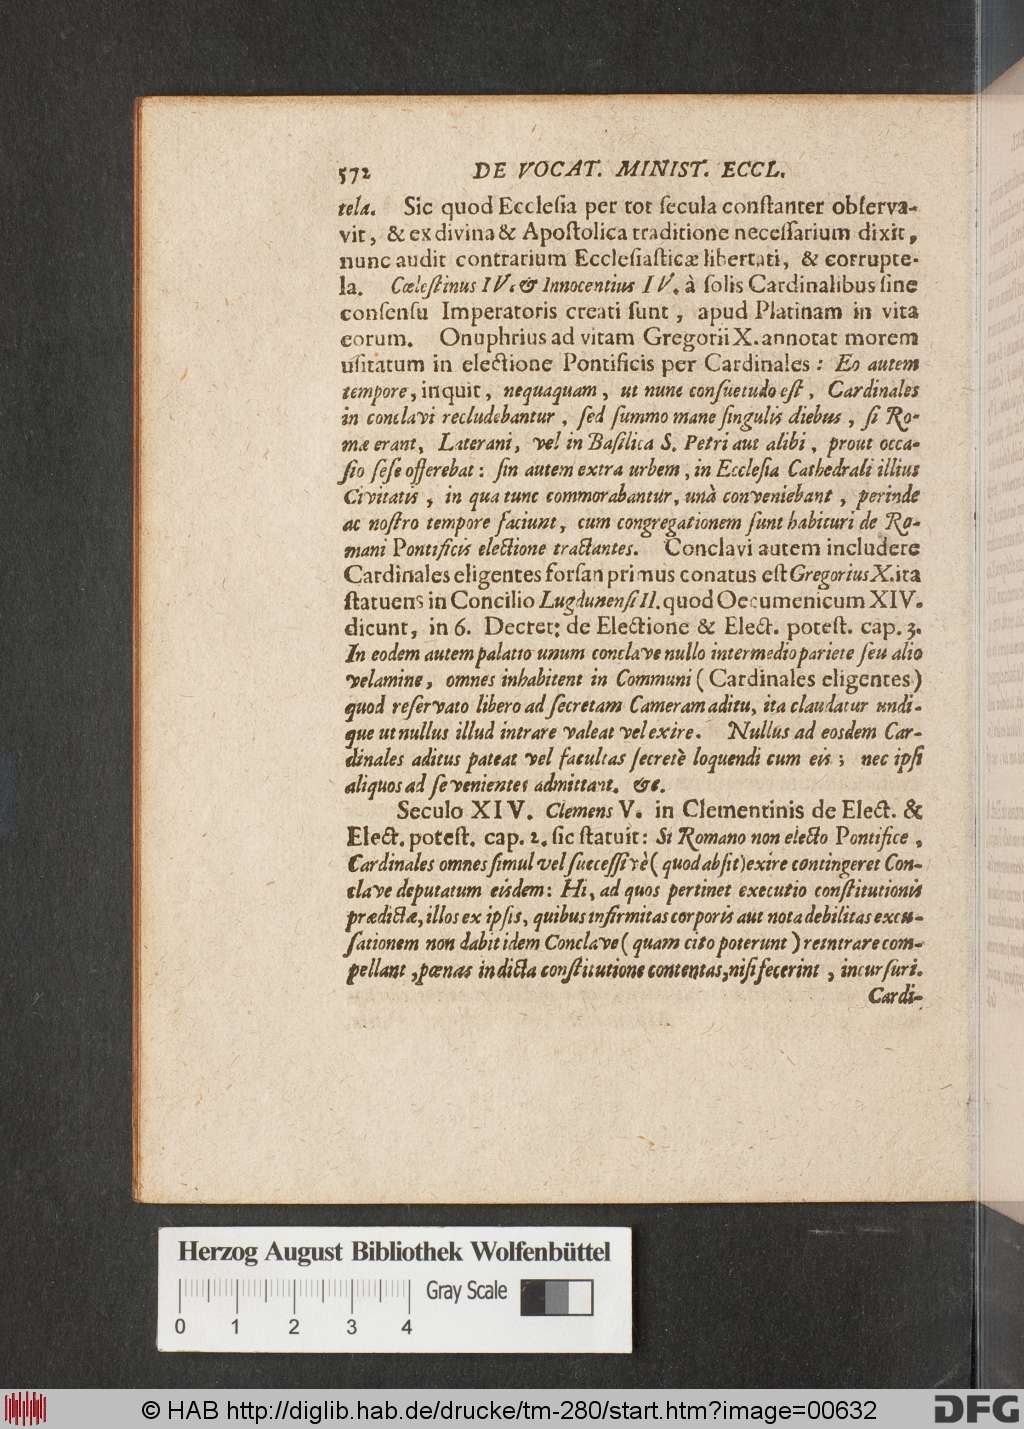 572 DE VOCAT. MINIST. ECCL.
tela. Sic quod Eccleſia per tot ſecula conſtanter obſerva-
vit, & ex divina & Apoſtolica traditione neceſſarium dixit,
nunc audit contrarium Eccleſiaſticæ libertati, & corrupte-
la. Cœleſtinus IV. & Innocentius IV. à ſolis Cardinalibus ſine
conſenſu Imperatoris creati ſunt, apud Platinam in vita
eorum. Onuphrius ad vitam Gregorii X. annotat morem
uſitatum in electione Pontificis per Cardinales: Eo autem
tempore, inquit, nequaquam, ut nunc conſuetudo eſt, Cardinales
in conclavi recludebantur, ſed ſummo mane ſingulis diebus, ſi Ro-
mæ erant, Laterani, vel in Baſilica S. Petri aut alibi, prout occa-
ſio ſeſe offerebat: ſin autem extra urbem, in Eccleſia Cathedrali illius
Civitatis, in qua tunc commorabantur, unà conveniebant, perinde
ac noſtro tempore faciunt, cum congregationem ſunt habituri de Ro-
mani Pontificis electione tractantes. Conclavi autem includere
Cardinales eligentes forſan primus conatus eſt Gregorius X. ita
ſtatuens in Concilio Lugdunenſi II. quod Oecumenicum XIV.
dicunt, in 6. Decret: de Electione & Elect. poteſt. cap. 3.
In eodem autem palatio unum conclave nullo intermedio pariete ſeu alio
velamine, omnes inhabitent in Communi (Cardinales eligentes)
quod reſervato libero ad ſecretam Cameram aditu, ita claudatur undi-
que ut nullus illud intrare valeat vel exire. Nullus ad eosdem Car-
dinales aditus pateat vel facultas ſecretè loquendi cum eis; nec ipſi
aliquos ad ſe venientes admittant. &c.
Seculo XIV. Clemens V. in Clementinis de Elect. &
Elect. poteſt. cap. 2. ſic ſtatuit: Si Romano non electo Pontifice,
Cardinales omnes ſimul vel ſucceſſivè (quod abſit) exire contingeret Con-
clave deputatum eisdem: Hi, ad quos pertinet executio conſtitutionis
prædictæ, illos ex ipſis, quibus infirmitas corporis aut nota debilitas excu-
ſationem non dabit idem Conclave (quam cito poterunt) reintrare com-
pellant, pœnas in dicta conſtitutione contentas, niſi fecerint, incurſuri.
Cardi-
Herzog August Bibliothek Wolfenbüttel
Gray Scale
0 1 2 3 4
© HAB http://diglib.hab.de/drucke/tm-280/start.htm?image=00632
DFG